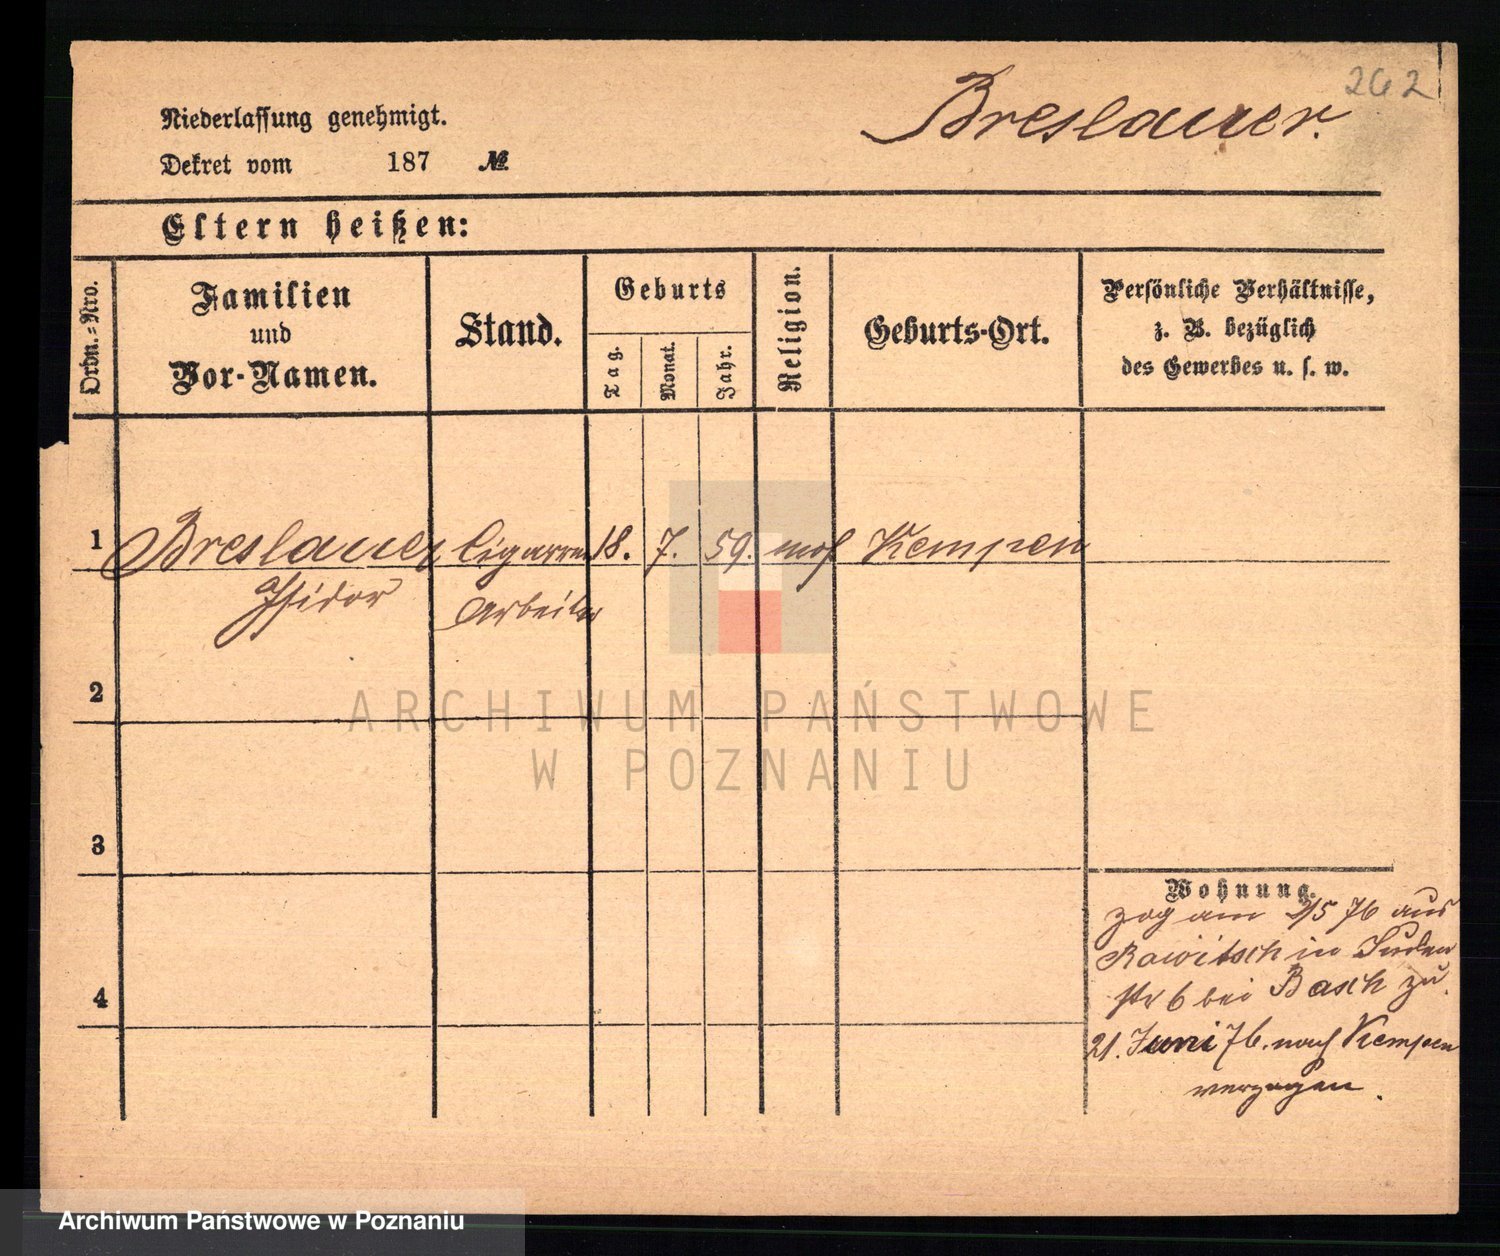 262
Breslauer.
Niederlassung genehmigt.
Dekret vom 187 №
Eltern heißen:
Ordn.=Nro.
Familien
und
Vor-Namen.
Stand.
Geburts
Tag.
Monat.
Jahr.
Religion.
Geburts-Ort.
Persönliche Verhältnisse,
z. B. bezüglich
des Gewerbes u. s. w.
1 Breslauer Cigarren 18. 7. 59. mos Kempen
Isidor Arbeiter
2
3
4
Wohnung.
zog am 2/5 76 aus
Rawitsch in Juden
str 6 bei Basch zu.
21. Juni 76. nach Kempen
verzogen.
ARCHIWUM PAŃSTWOWE
W POZNANIU
Archiwum Państwowe w Poznaniu